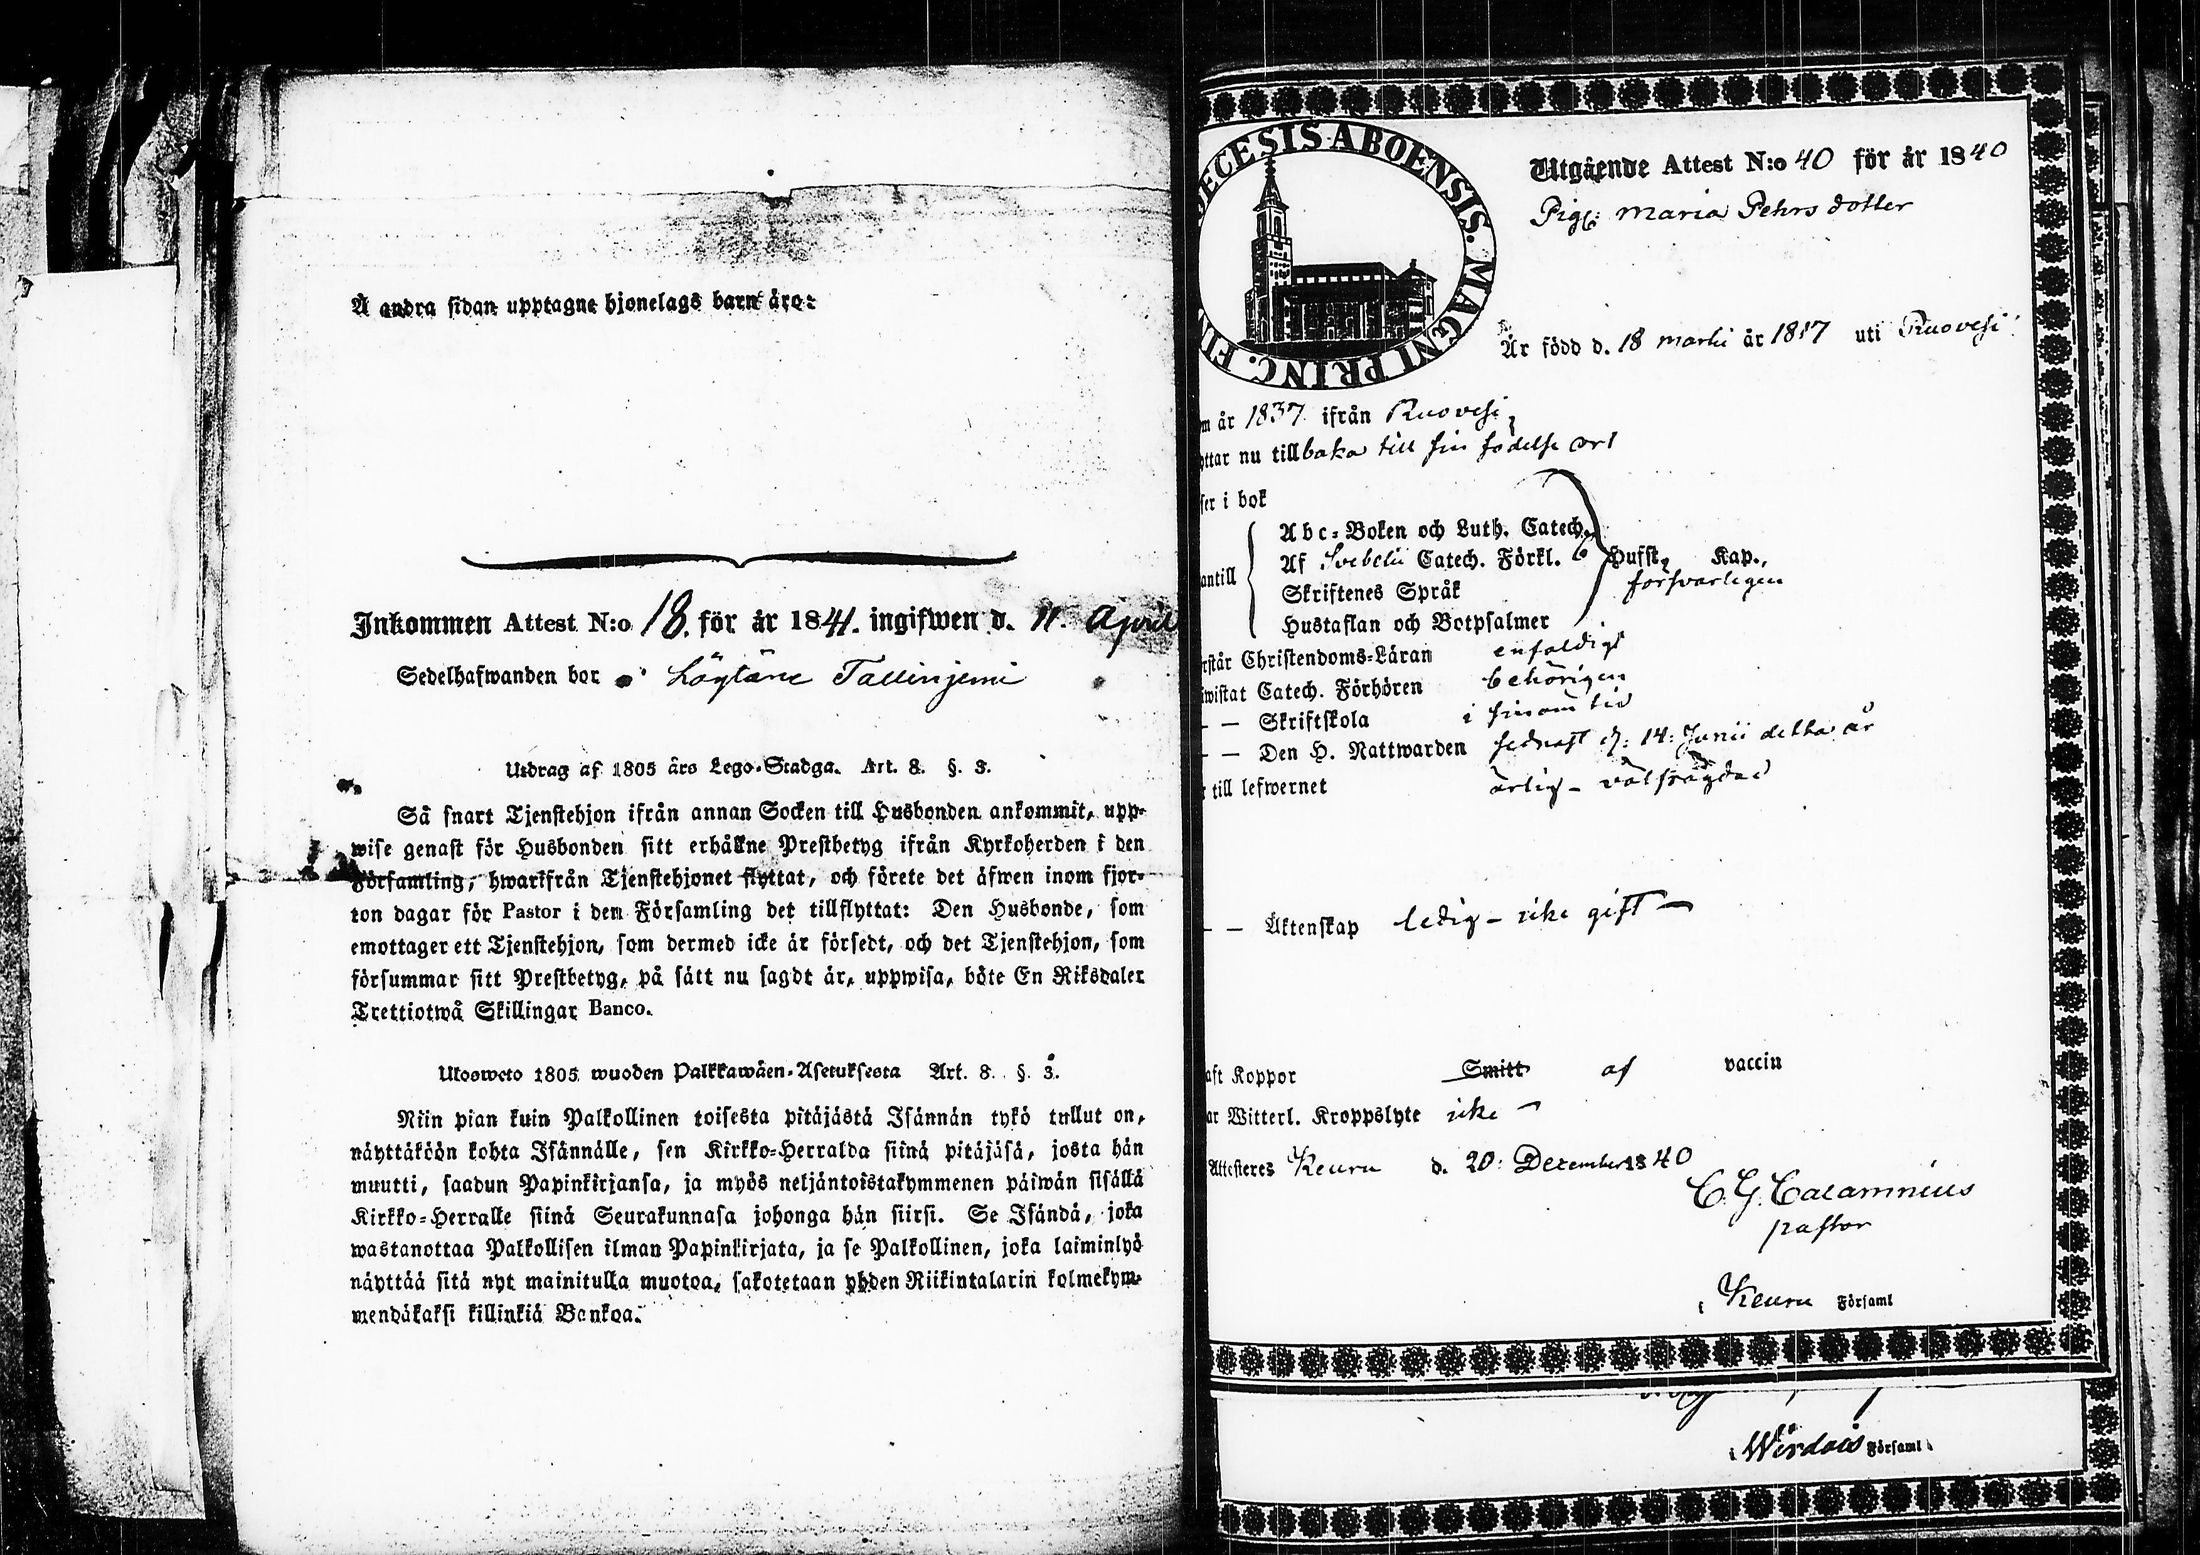 Å andra sidan upptagne hjonelags barn äro:
Inkommen Attest N:o 18. för år 1841. ingifwen d. 11. April
Sedelhafwanden bor Löytäne Tallinjemi
Utdrag af 1805 års Lego-Stadga. Art. 8. §. 3.
Så snart Tjenstehjon ifrån annan Socken till Husbonden ankommit, upp-
wise genast för Husbonden sitt erhållne Prestbetyg ifrån Kyrkoherden i den
Församling, hwarifrån Tjenstehjonet flyttat, och förete det äfwen inom fjor-
ton dagar för Pastor i den Församling det tillflyttat: Den Husbonde, som
emottager ett Tjenstehjon, som dermed icke är försedt, och det Tjenstehjon, som
försummar sitt Prestbetyg, på sätt nu sagdt är, uppwisa, böte En Riksdaler
Trettiotwå Skillingar Banco.
Ulosweto 1805 wuoden Palkkawäen-Asetuksesta Art. 8. §. 3.
Niin pian kuin Palkollinen toisesta pitäjästä Isännän tykö tullut on,
näyttäköön kohta Isännälle, sen Kirkko-Herralda siinä pitäjäsä, josta hän
muutti, saadun Papinkirjansa, ja myös neljäntoistakymmenen päiwän sisällä
Kirkko-Herralle siinä Seurakunnasa johonga hän siirsi. Se Isändä, joka
wastanottaa Palkollisen ilman Papinkirjata, ja se Palkollinen, joka laiminlyö
näyttää sitä nyt mainitulla muotoa, sakotetaan yhden Riikintalarin kolmekym-
mendäkaksi killinkiä Bankoa.
ECESIS ABOENSIS. MAGNI PRINC. FIN
Utgående Attest N:o 40 för år 1840
Pig: Maria Pehrsdotter
Är född d. 18 martii år 1817 uti Ruovesi
m år 1837 ifrån Ruovesi,
ttar nu tillbaka till sin födelse ort
ser i bok
antill
Abc-Boken och Luth. Catech.
Af Svebelii Catech. Förkl. 6 Hufst. Kap.,
Skriftenes Språk försvarligen
Hustaflan och Botpsalmer
rstår Christendoms-Läran enfaldigt
wistat Catech. Förhören behörigen
– – Skriftskola i sinom tid
– – Den H. Nattwarden sednast d: 14: Junii detta år
till lefwernet ärlig – välfrägdad
– – Äktenskap ledig – icke gift –
aft Koppor Smitt af vaccin
ar Witterl. Kroppslyte icke –
Attesteres Keuru d. 20: December 1840
C. G. Calamnius
pastor
i Keuru Församl
i Wirdois Församl